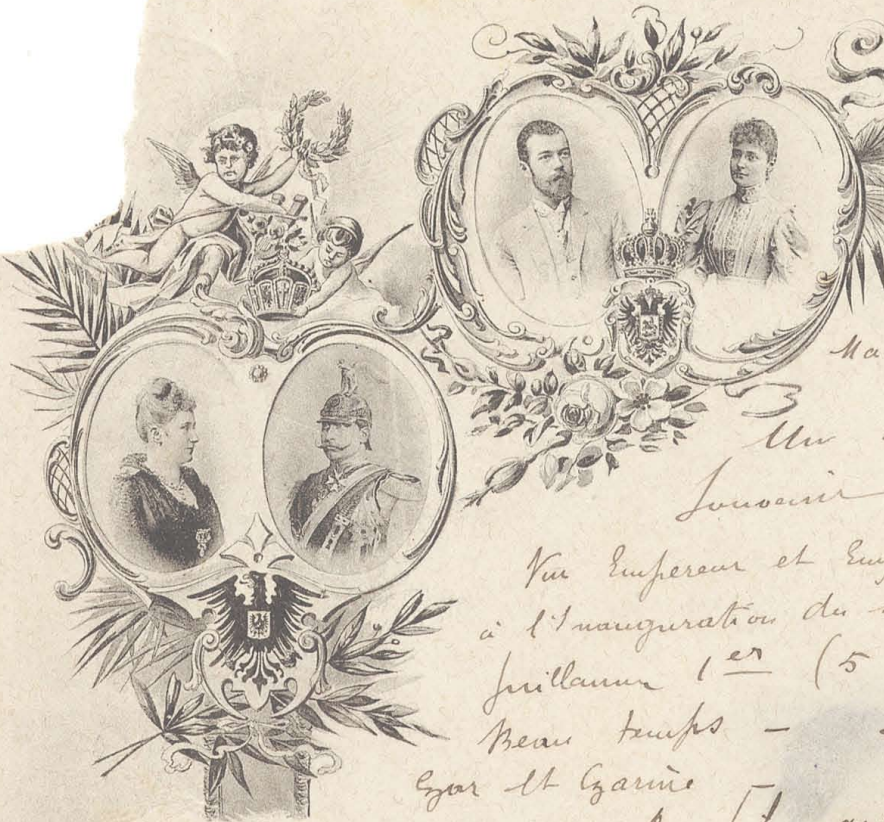 Un
Souvenir
Vu Empereur et
à l'Inauguration du
Guillaume 1er (5
Beau temps —
Czar et Czarine —